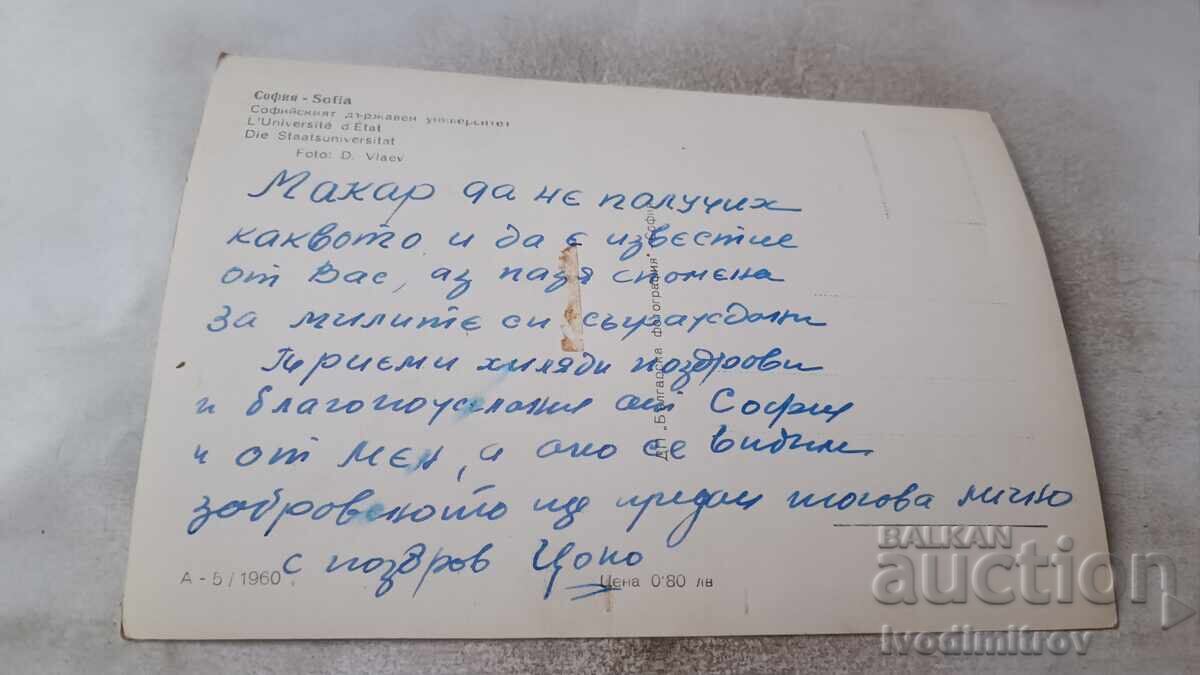 София - Sofia
Софийският държавен университет
L'Université d'État
Die Staatsuniversitat
Foto: D. Vlaev
Макар да не получих
каквото и да е известие
от Вас, аз пазя спомена
за милите си съграждани
Приеми хиляди поздрови
и благопожелания от София
и от мен, а ако се видим
ще предам тогава лично
с поздров Цоно
ДП „Българска фотография" София
А - 5 / 1960
Цена 0'80 лв
BALKAN
auction
Ivodimitrov